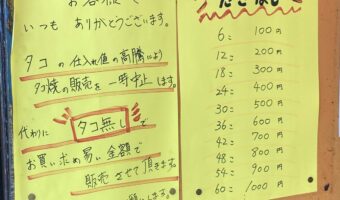 お客様へ
いつも ありがとうございます。
タコの仕入れ値の高騰により
タコ焼の販売を一時中止します。
代わりに タコ無し で
お買い求め易い金額で
販売させて頂きます。
たこなし
6= 100円
12= 200円
18= 300円
24= 400円
30= 500円
36= 600円
42= 700円
48= 800円
54= 900円
60= 1000円